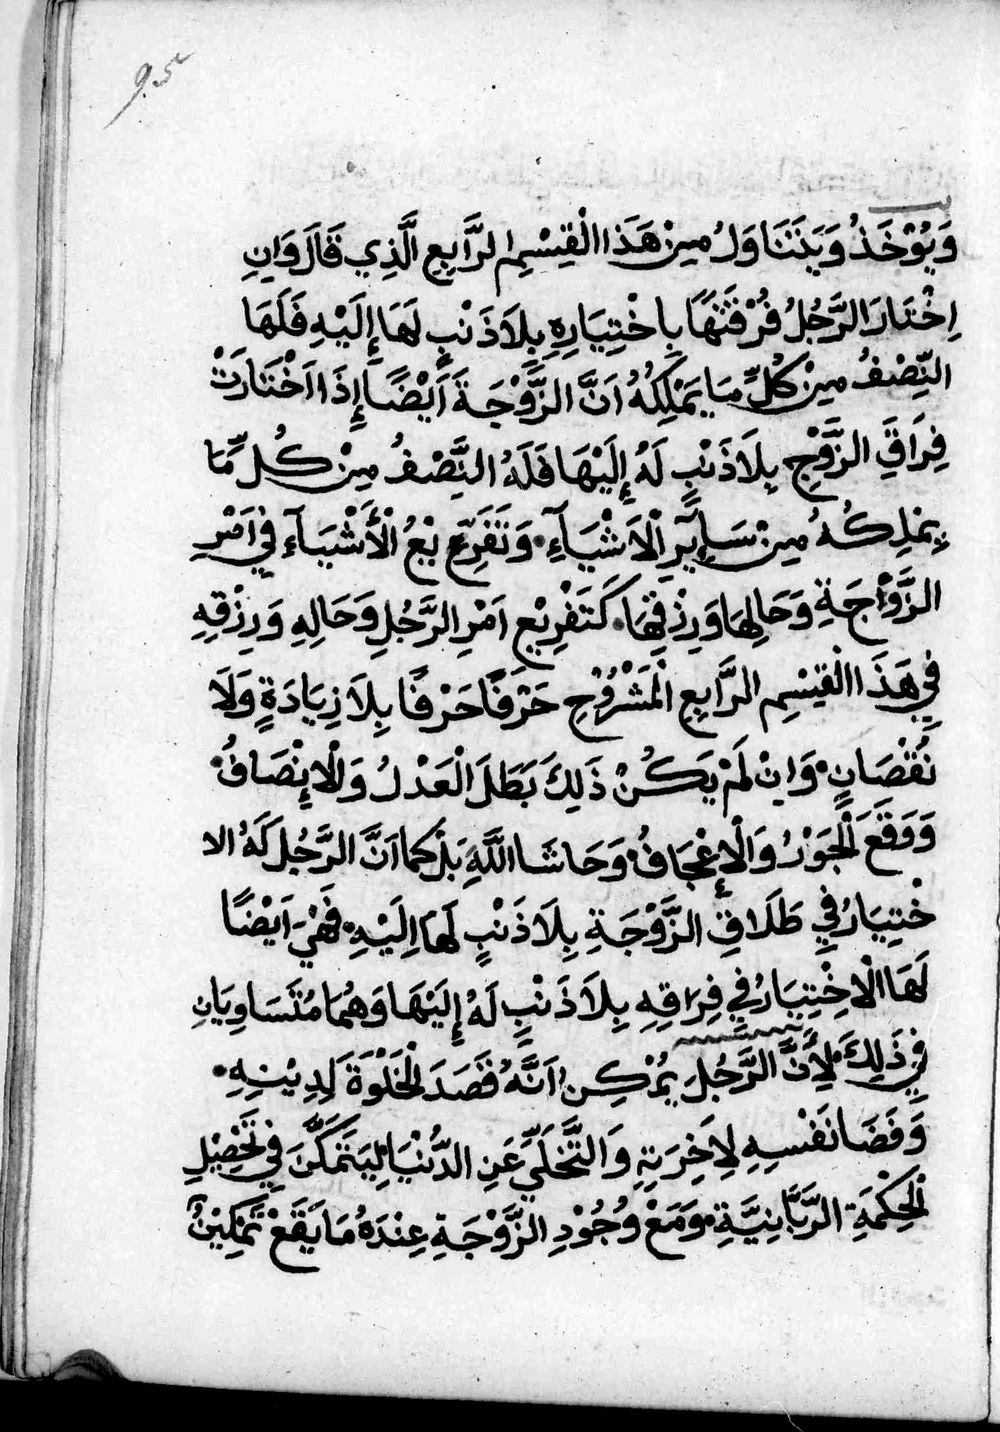 وَيُوْخَذُ وَيَتَنَاوَلُ مِنْ هَذَا الْقِسْمِ الرَّابِعِ الَّذِي قَالَ وَاِنِ
اِخْتَارَ الرَّجُلُ فُرْقَتَهَا بِاخْتِيَارِهِ بِلاَ ذَنْبٍ لَهَا إِلَيْهِ فَلَهَا
النِّصْفُ مِنْ كُلِّ مَا يَمْلِكُهُ اَنَّ الزَّوْجَةَ أَيْضًا إِذَا اخْتَارَتْ
فِرَاقَ الزَّوْجِ بِلاَ ذَنْبٍ لَهُ إِلَيْهَا فَلَهُ النِّصْفُ مِنْ كُلِّ مَّا
يَمْلِكُهُ مِنْ سَايِرِ الْاَشْيَآءِ۰ وَتَفَرِيْعُ الْأَشْيَآءِ فِي اَمْرِ
الزَّوْجَةِ وَحَالِهَا وَرِزْقِهَا۰ كَتَفْرِيْعِ اَمْرِ الرَّجُلِ وَحَالِهِ وَرِزْقِهِ
فِي هَذَا الْقِسْمِ الرَّابِعِ الْمَشْرُوْحِ حَرْفًا حَرْفًا بِلاَ زِيَادَةٍ وَلَا
نُقْصَانٍ۰ وَاِنْ لَمْ يَكُنْ ذَلِكَ بَطَلَ الْعَدْلُ وَالْاِنْصَافُ۰
وَوَقَعَ الْجَوْرُ وَالْاِعْجَافُ۰ وَحَاشَا اللَّهِ بَلْ كَمَا اَنَّ الرَّجُلَ لَهُ الا
خْتِيَارُ فِي طَلَاقِ الزَّوْجَةِ بِلَا ذَنْبٍ لَهَا اِلَيْهِ۰ فَهْيَ اَيْضًا
لَهَا الْاِخْتِيَارُ فِي فِرَاقِهِ بِلاَ ذَنْبٍ لَهُ إِلَيْهَا وَهُمَا مُتَسَاوِيَانِ
فِي ذَلِكَ۰ لِأَنَّ الرَّجُلَ يُمْكِنُ اَنَّهُ قَصَدَ الْخَلْوَةَ لِدِيْنِهِ۰
وَفَضَا نَفْسِهِ لِاَخِرَتِهِ وَالتَّخَلِّي عَنِ الدُّنْيَا لِيَتَمَكَّنَ فِي تَحْصِيْلِ
الْحِكْمَةِ الرَّبَّانِيَّةِ۰ وَمَعْ وُجُوْدِ الزَّوْجَةِ عِنْدَهُ مَا يَقَعْ تَمْكِيْنٌ